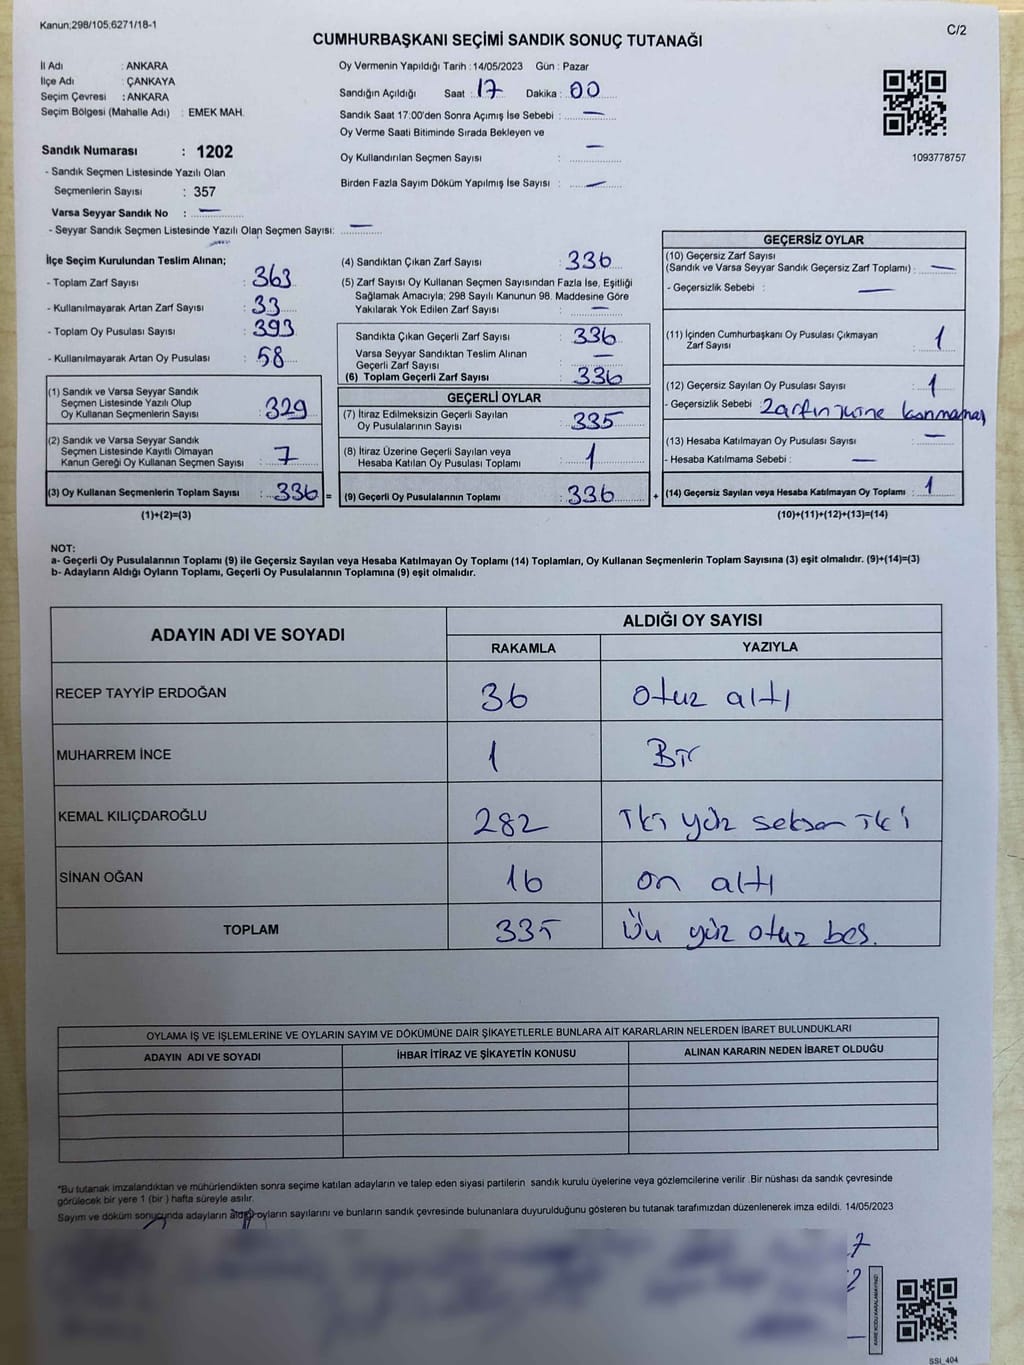 Kanun:298/105;6271/18-1
C/2
CUMHURBAŞKANI SEÇİMİ SANDIK SONUÇ TUTANAĞI
İl Adı : ANKARA
İlçe Adı : ÇANKAYA
Seçim Çevresi : ANKARA
Seçim Bölgesi (Mahalle Adı) : EMEK MAH.
Sandık Numarası : 1202
- Sandık Seçmen Listesinde Yazılı Olan
Seçmenlerin Sayısı : 357
Varsa Seyyar Sandık No : —
- Seyyar Sandık Seçmen Listesinde Yazılı Olan Seçmen Sayısı: —
Oy Vermenin Yapıldığı Tarih : 14/05/2023 Gün : Pazar
Sandığın Açıldığı Saat : 17 Dakika : 00
Sandık Saat 17:00'den Sonra Açımış İse Sebebi : —
Oy Verme Saati Bitiminde Sırada Bekleyen ve
Oy Kullandırılan Seçmen Sayısı : —
Birden Fazla Sayım Döküm Yapılmış İse Sayısı : —
1093778757
İlçe Seçim Kurulundan Teslim Alınan;
- Toplam Zarf Sayısı : 363
- Kullanılmayarak Artan Zarf Sayısı : 33
- Toplam Oy Pusulası Sayısı : 393
- Kullanılmayarak Artan Oy Pusulası : 58
(1) Sandık ve Varsa Seyyar Sandık
Seçmen Listesinde Yazılı Olup
Oy Kullanan Seçmenlerin Sayısı : 329
(2) Sandık ve Varsa Seyyar Sandık
Seçmen Listesinde Kayıtlı Olmayan
Kanun Gereği Oy Kullanan Seçmen Sayısı : 7
(3) Oy Kullanan Seçmenlerin Toplam Sayısı : 336 =
(1)+(2)=(3)
(4) Sandıktan Çıkan Zarf Sayısı : 336
(5) Zarf Sayısı Oy Kullanan Seçmen Sayısından Fazla İse, Eşitliği
Sağlamak Amacıyla; 298 Sayılı Kanunun 98. Maddesine Göre
Yakılarak Yok Edilen Zarf Sayısı : —
Sandıkta Çıkan Geçerli Zarf Sayısı : 336
Varsa Seyyar Sandıktan Teslim Alınan
Geçerli Zarf Sayısı : —
(6) Toplam Geçerli Zarf Sayısı : 336
GEÇERLİ OYLAR
(7) İtiraz Edilmeksizin Geçerli Sayılan
Oy Pusulalarının Sayısı : 335
(8) İtiraz Üzerine Geçerli Sayılan veya
Hesaba Katılan Oy Pusulası Toplamı : 1
(9) Geçerli Oy Pusulalarının Toplamı : 336 +
GEÇERSİZ OYLAR
(10) Geçersiz Zarf Sayısı
(Sandık ve Varsa Seyyar Sandık Geçersiz Zarf Toplamı) : —
- Geçersizlik Sebebi : —
(11) İçinden Cumhurbaşkanı Oy Pusulası Çıkmayan
Zarf Sayısı : 1
(12) Geçersiz Sayılan Oy Pusulası Sayısı : 1
- Geçersizlik Sebebi Zarfın içine konmamas
(13) Hesaba Katılmayan Oy Pusulası Sayısı : —
- Hesaba Katılmama Sebebi : —
(14) Geçersiz Sayılan veya Hesaba Katılmayan Oy Toplamı : 1
(10)+(11)+(12)+(13)=(14)
NOT:
a- Geçerli Oy Pusulalarının Toplamı (9) ile Geçersiz Sayılan veya Hesaba Katılmayan Oy Toplamı (14) Toplamları, Oy Kullanan Seçmenlerin Toplam Sayısına (3) eşit olmalıdır. (9)+(14)=(3)
b- Adayların Aldığı Oyların Toplamı, Geçerli Oy Pusulalarının Toplamına (9) eşit olmalıdır.
ADAYIN ADI VE SOYADI
ALDIĞI OY SAYISI
RAKAMLA YAZIYLA
RECEP TAYYİP ERDOĞAN 36 otuz altı
MUHARREM İNCE 1 Bir
KEMAL KILIÇDAROĞLU 282 iki yüz seksen iki
SİNAN OĞAN 16 on altı
TOPLAM 335 Üü yüz otuz beş.
OYLAMA İŞ VE İŞLEMLERİNE VE OYLARIN SAYIM VE DÖKÜMÜNE DAİR ŞİKAYETLERLE BUNLARA AİT KARARLARIN NELERDEN İBARET BULUNDUKLARI
ADAYIN ADI VE SOYADI İHBAR İTİRAZ VE ŞİKAYETİN KONUSU ALINAN KARARIN NEDEN İBARET OLDUĞU
*Bu tutanak imzalandıktan ve mühürlendikten sonra seçime katılan adayların ve talep eden siyasi partilerin sandık kurulu üyelerine veya gözlemcilerine verilir .Bir nüshası da sandık çevresinde
görülecek bir yere 1 (bir ) hafta süreyle asılır.
Sayım ve döküm sonucunda adayların aldığı oyların sayılarını ve bunların sandık çevresinde bulunanlara duyurulduğunu gösteren bu tutanak tarafımızdan düzenlenerek imza edildi. 14/05/2023
KARE KODU KARALAMAYINIZ!
SSI_404